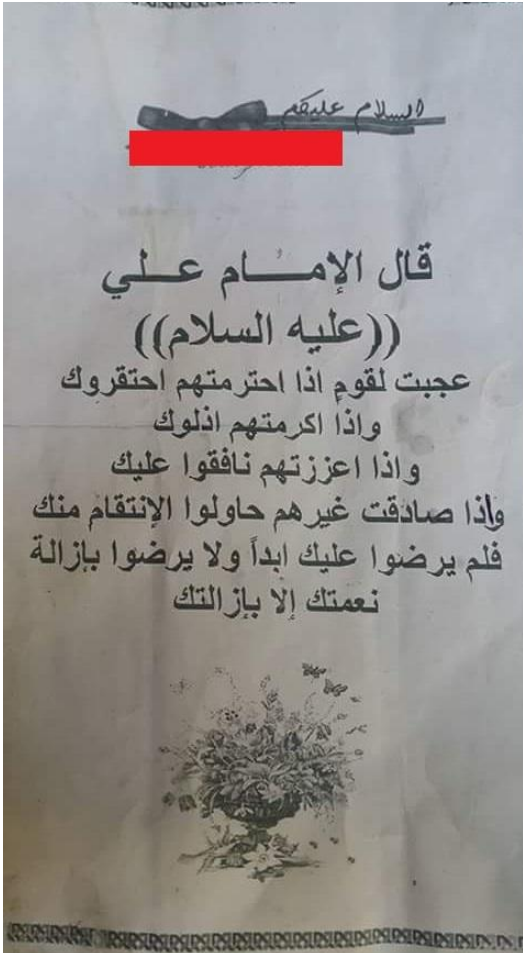 السلام عليكم
قال الإمــــام عــلــي
((عليه السلام))
عجبت لقومٍ اذا احترمتهم احتقروك
واذا اكرمتهم اذلوك
واذا اعززتهم نافقوا عليك
وإذا صادقت غيرهم حاولوا الإنتقام منك
فلم يرضوا عليك ابداً ولا يرضوا بإزالة
نعمتك إلا بإزالتك